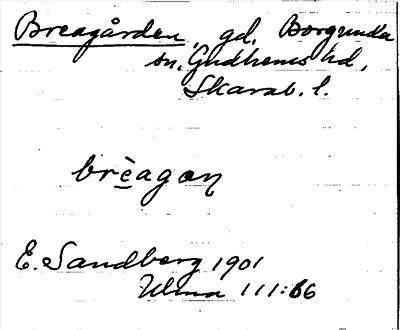 Breagården, gd, Borgunda
sn, Gudhems hd,
Skarab. l.
brèagаn̥
E. Sandberg 1901
Ulma 111:66